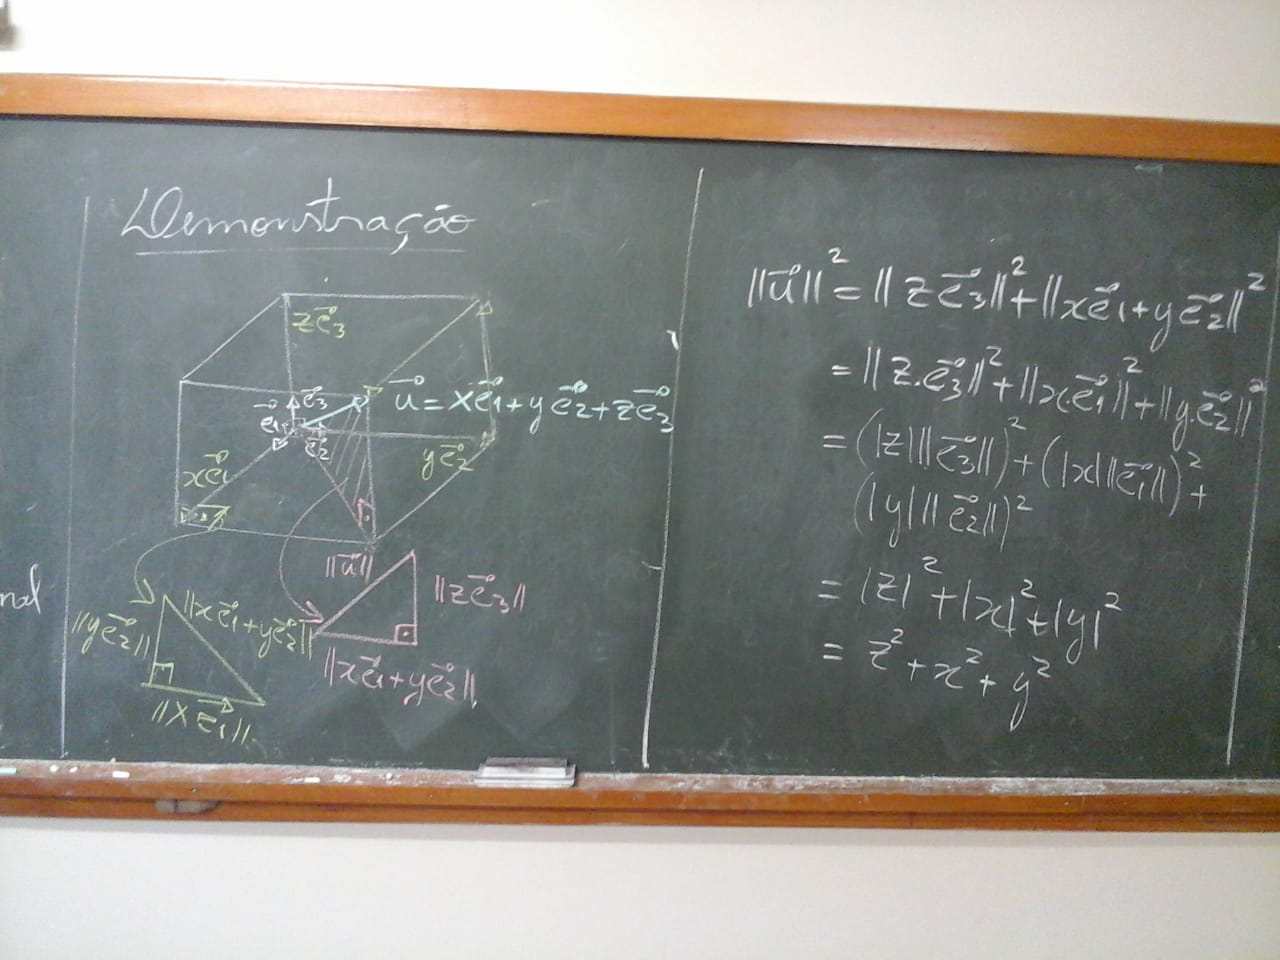 Demonstração
z\vec{e}_3
\vec{e}_3
\vec{e}_1
\vec{e}_2
\vec{u} = x\vec{e}_1 + y\vec{e}_2 + z\vec{e}_3
x\vec{e}_1
y\vec{e}_2
nal
||\vec{u}||
||z\vec{e}_3||
||x\vec{e}_1 + y\vec{e}_2||
||y\vec{e}_2||
||x\vec{e}_1 + y\vec{e}_2||
||x\vec{e}_1||
||\vec{u}||² = ||z\vec{e}_3||² + ||x\vec{e}_1 + y\vec{e}_2||²
= ||z.\vec{e}_3||² + ||x\vec{e}_1||² + ||y.\vec{e}_2||²
= (|z| ||\vec{e}_3||)² + (|x| ||\vec{e}_1||)² +
(|y| ||\vec{e}_2||)²
= |z|² + |x|² + |y|²
= z² + x² + y²